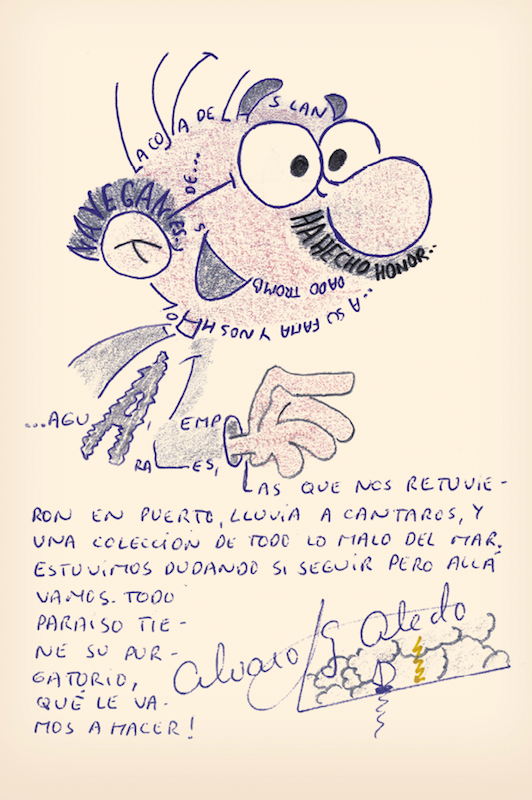 LA COSTA DE LAS LAN
DE...
NAVEGAN
ES..
HA HECHO HONOR..
...A SU FAMA Y NOS HA
DADO TROMB
S
...AGUA, TEMPO
RALES,
LAS QUE NOS RETUVIE-
RON EN PUERTO, LLUVIA A CANTAROS, Y
UNA COLECCIÓN DE TODO LO MALO DEL MAR.
ESTUVIMOS DUDANDO SI SEGUIR PERO ALLÁ
VAMOS. TODO
PARAISO TIE-
NE SU PUR-
GATORIO,
QUÉ LE VA-
MOS A HACER!
Alvaro G Aledo